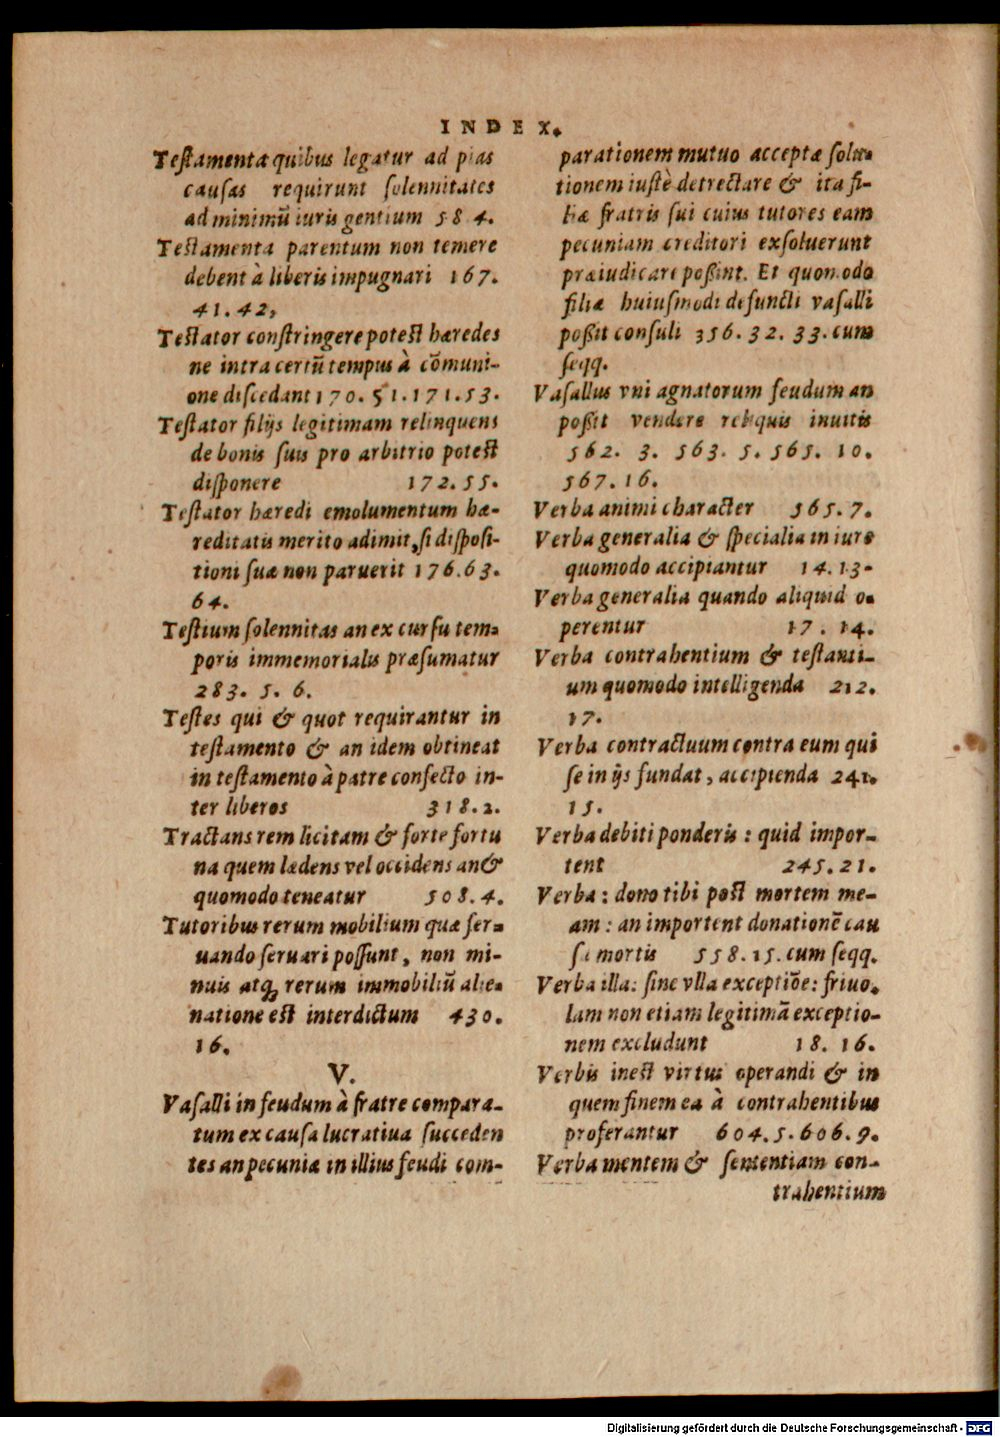 INDEX.
Teſtamenta quibus legatur ad pias
cauſas requirunt ſolennitates
ad minimũ iuris gentium 584.
Teſtamenta parentum non temere
debent à liberis impugnari 167.
41.42,
Teſtator conſtringere poteſt hæredes
ne intra certũ tempus à cõmuni-
one diſcedant 170. 51.171.53.
Teſtator filijs legitimam relinquens
de bonis ſuis pro arbitrio poteſt
diſponere 172.55.
Teſtator hæredi emolumentum hæ-
reditatis merito adimit, ſi diſpoſi-
tioni ſuæ non paruerit 176.63.
64.
Teſtium ſolennitas an ex curſu tem-
poris immemorialis præſumatur
283. 5. 6.
Teſtes qui & quot requirantur in
teſtamento & an idem obtineat
in teſtamento à patre confecto in-
ter liberos 318.2.
Tractans rem licitam & forte fortu
na quem lædens vel occidens an &
quomodo teneatur 508.4.
Tutoribus rerum mobilium quæ ſer-
uando ſeruari poſſunt, non mi-
nuis atq; rerum immobiliũ alie-
natione eſt interdictum 430.
16.
V.
Vaſalli in feudum à fratre compara-
tum ex cauſa lucratiua ſucceden
tes an pecuniæ in illius feudi com-
parationem mutuo acceptæ ſolu-
tionem iuſtè detrectare & ita fi-
liæ fratris ſui cuius tutores eam
pecuniam creditori exſoluerunt
præiudicare poßint. Et quomodo
filiæ huiuſmodi defuncti vaſalli
poßit conſuli 356. 32. 33. cum
ſeqq.
Vaſallus vni agnatorum feudum an
poßit vendere reliquis inuitis
562. 3. 563. 5. 565. 10.
567.16.
Verba animi character 565.7.
Verba generalia & ſpecialia in iure
quomodo accipiantur 14.13-
Verba generalia quando aliquid o-
perentur 17. 14.
Verba contrahentium & teſtanti-
um quomodo intelligenda 212.
17.
Verba contractuum contra eum qui
ſe in ijs fundat, accipienda 241.
15.
Verba debiti ponderis: quid impor-
tent 245.21.
Verba: dono tibi poſt mortem me-
am: an importent donationẽ cau
ſa mortis 558.15. cum ſeqq.
Verba illa: ſine vlla exceptiõe: friuo-
lam non etiam legitimã exceptio-
nem excludunt 18. 16.
Verbis ineſt virtus operandi & in
quem finem ea à contrahentibus
proferantur 604.5.606.9.
Verba mentem & ſententiam con-
trahentium
Digitalisierung gefördert durch die Deutsche Forschungsgemeinschaft - DFG